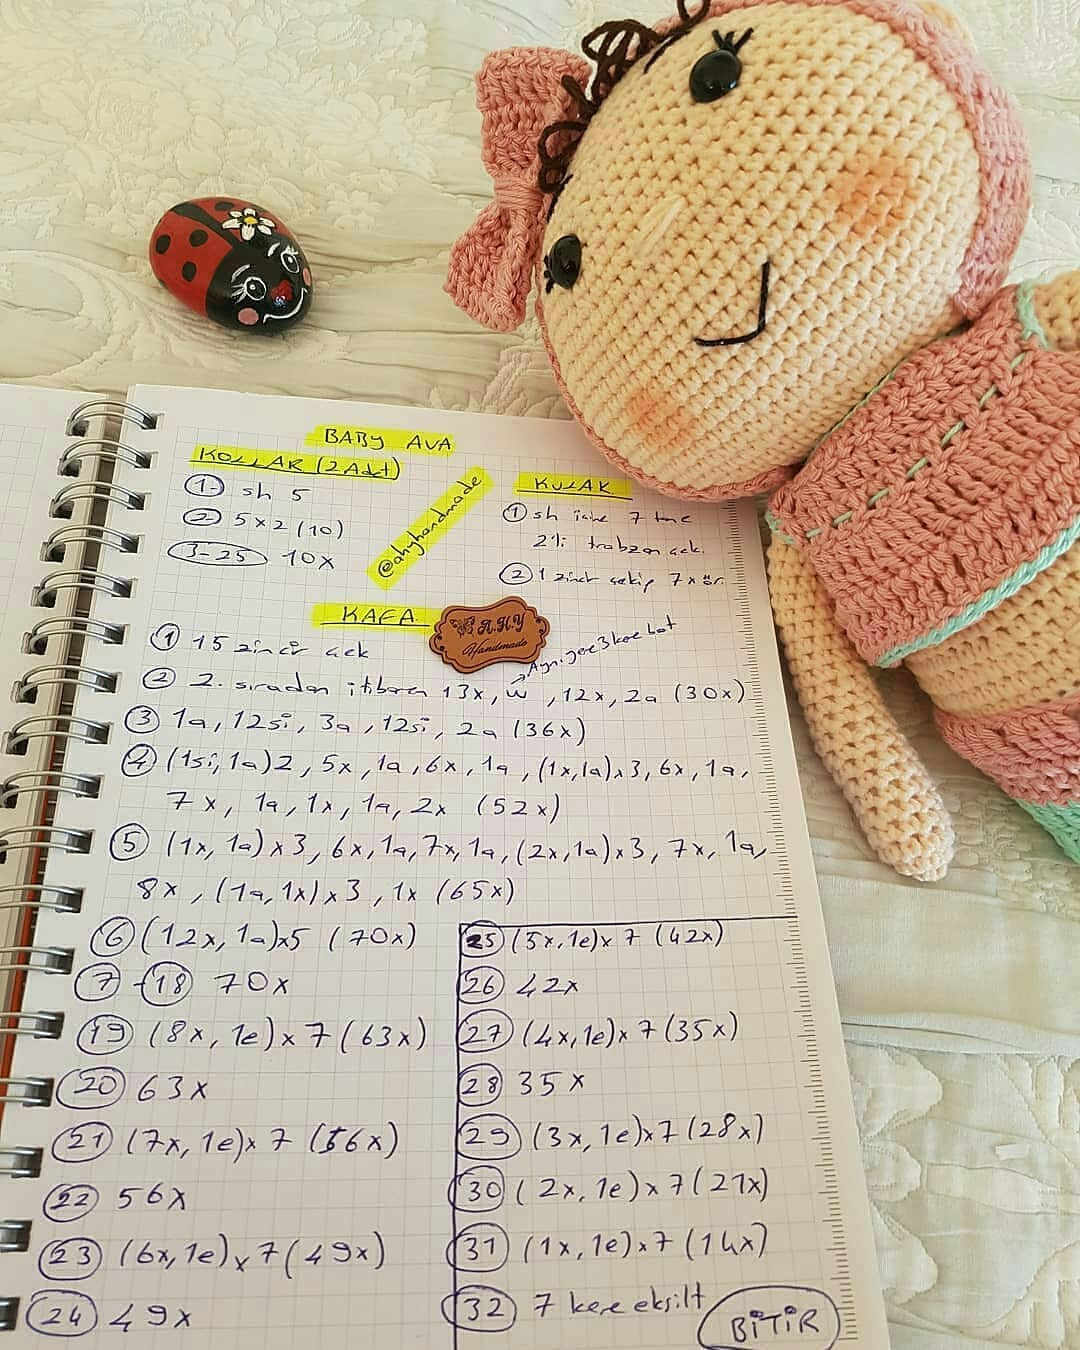 BABY AVA
KOLLAR (2 Adet)
① sh 5
② 5x2 (10)
3-25 10x
@ahyhandmade
KULAK
① sh içine 7 tane
2'li trabzan çek.
② 1 zincir çekip 7x ör.
KAFA
A.H.Y
Handmade
① 15 zincir çek
Aynı yere 3 kere bat
② 2. sıradan itibaren 13x, w , 12x, 2a (30x)
③ 1a, 12si, 3a, 12si, 2a (36x)
④ (1si, 1a)2, 5x, 1a, 6x, 1a, (1x, 1a)x3, 6x, 1a,
7x, 1a, 1x, 1a, 2x (52x)
⑤ (1x, 1a)x3, 6x, 1a, 7x, 1a, (2x, 1a)x3, 7x, 1a,
8x, (1a, 1x)x3, 1x (65x)
⑥ (12x, 1a)x5 (70x)
⑦-⑱ 70x
⑲ (8x, 1e)x7 (63x)
⑳ 63x
㉑ (7x, 1e)x7 (56x)
㉒ 56x
㉓ (6x, 1e)x7 (49x)
㉔ 49x
㉕ (5x, 1e)x7 (42x)
㉖ 42x
㉗ (4x, 1e)x7 (35x)
㉘ 35x
㉙ (3x, 1e)x7 (28x)
㉚ (2x, 1e)x7 (21x)
㉛ (1x, 1e)x7 (14x)
㉜ 7 kere eksilt
BİTİR